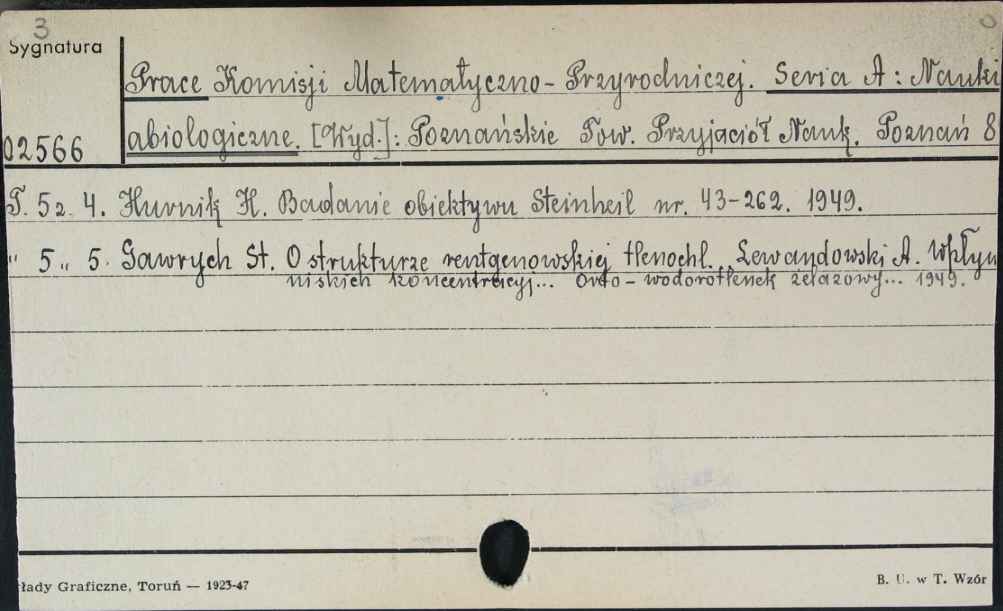 3
Sygnatura
Prace Komisji Matematyczno-Przyrodniczej. Seria A: Nauki
02566 abiologiczne. [Wyd.]: Poznańskie Tow. Przyjaciół Nauk. Poznań 8
T. 5 z. 4. Hurnik H. Badanie obiektywu Steinheil nr. 43-262. 1949.
" 5 " 5. Gawrych St. O strukturze rentgenowskiej tlenochl. Lewandowski A. Wpłyu
niskich koncentracyj... orto-wodorotlenek żelazowy... 1949.
łady Graficzne, Toruń — 1923-47
B. U. w T. Wzór